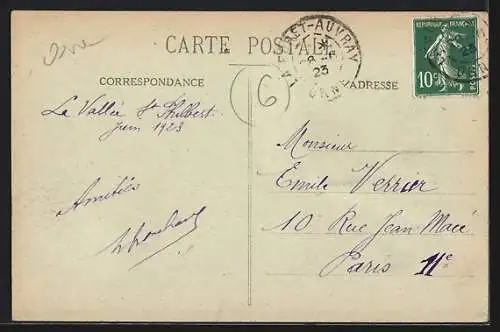 Orne
CARTE POSTALE
LA FORÊT-AUVRAY
23
ORNE
REPUBLIQUE FRANÇAISE
10c
POSTES
CORRESPONDANCE
ADRESSE
6
La Vallée St Philbert
Juin 1923
Amitiés
Monsieur
Emile Verrier
10 Rue Jean Macé
Paris 11e